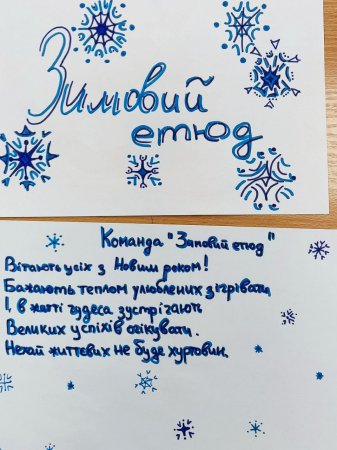 Зимовий
етюд
Команда "Зимовий етюд"
Вітають усіх з Новим роком!
Бажають теплом улюблених зігрівати,
І, в житті чудеса зустрічають
Великих успіхів очікувати.
Нехай життєвих не буде хуртовин.